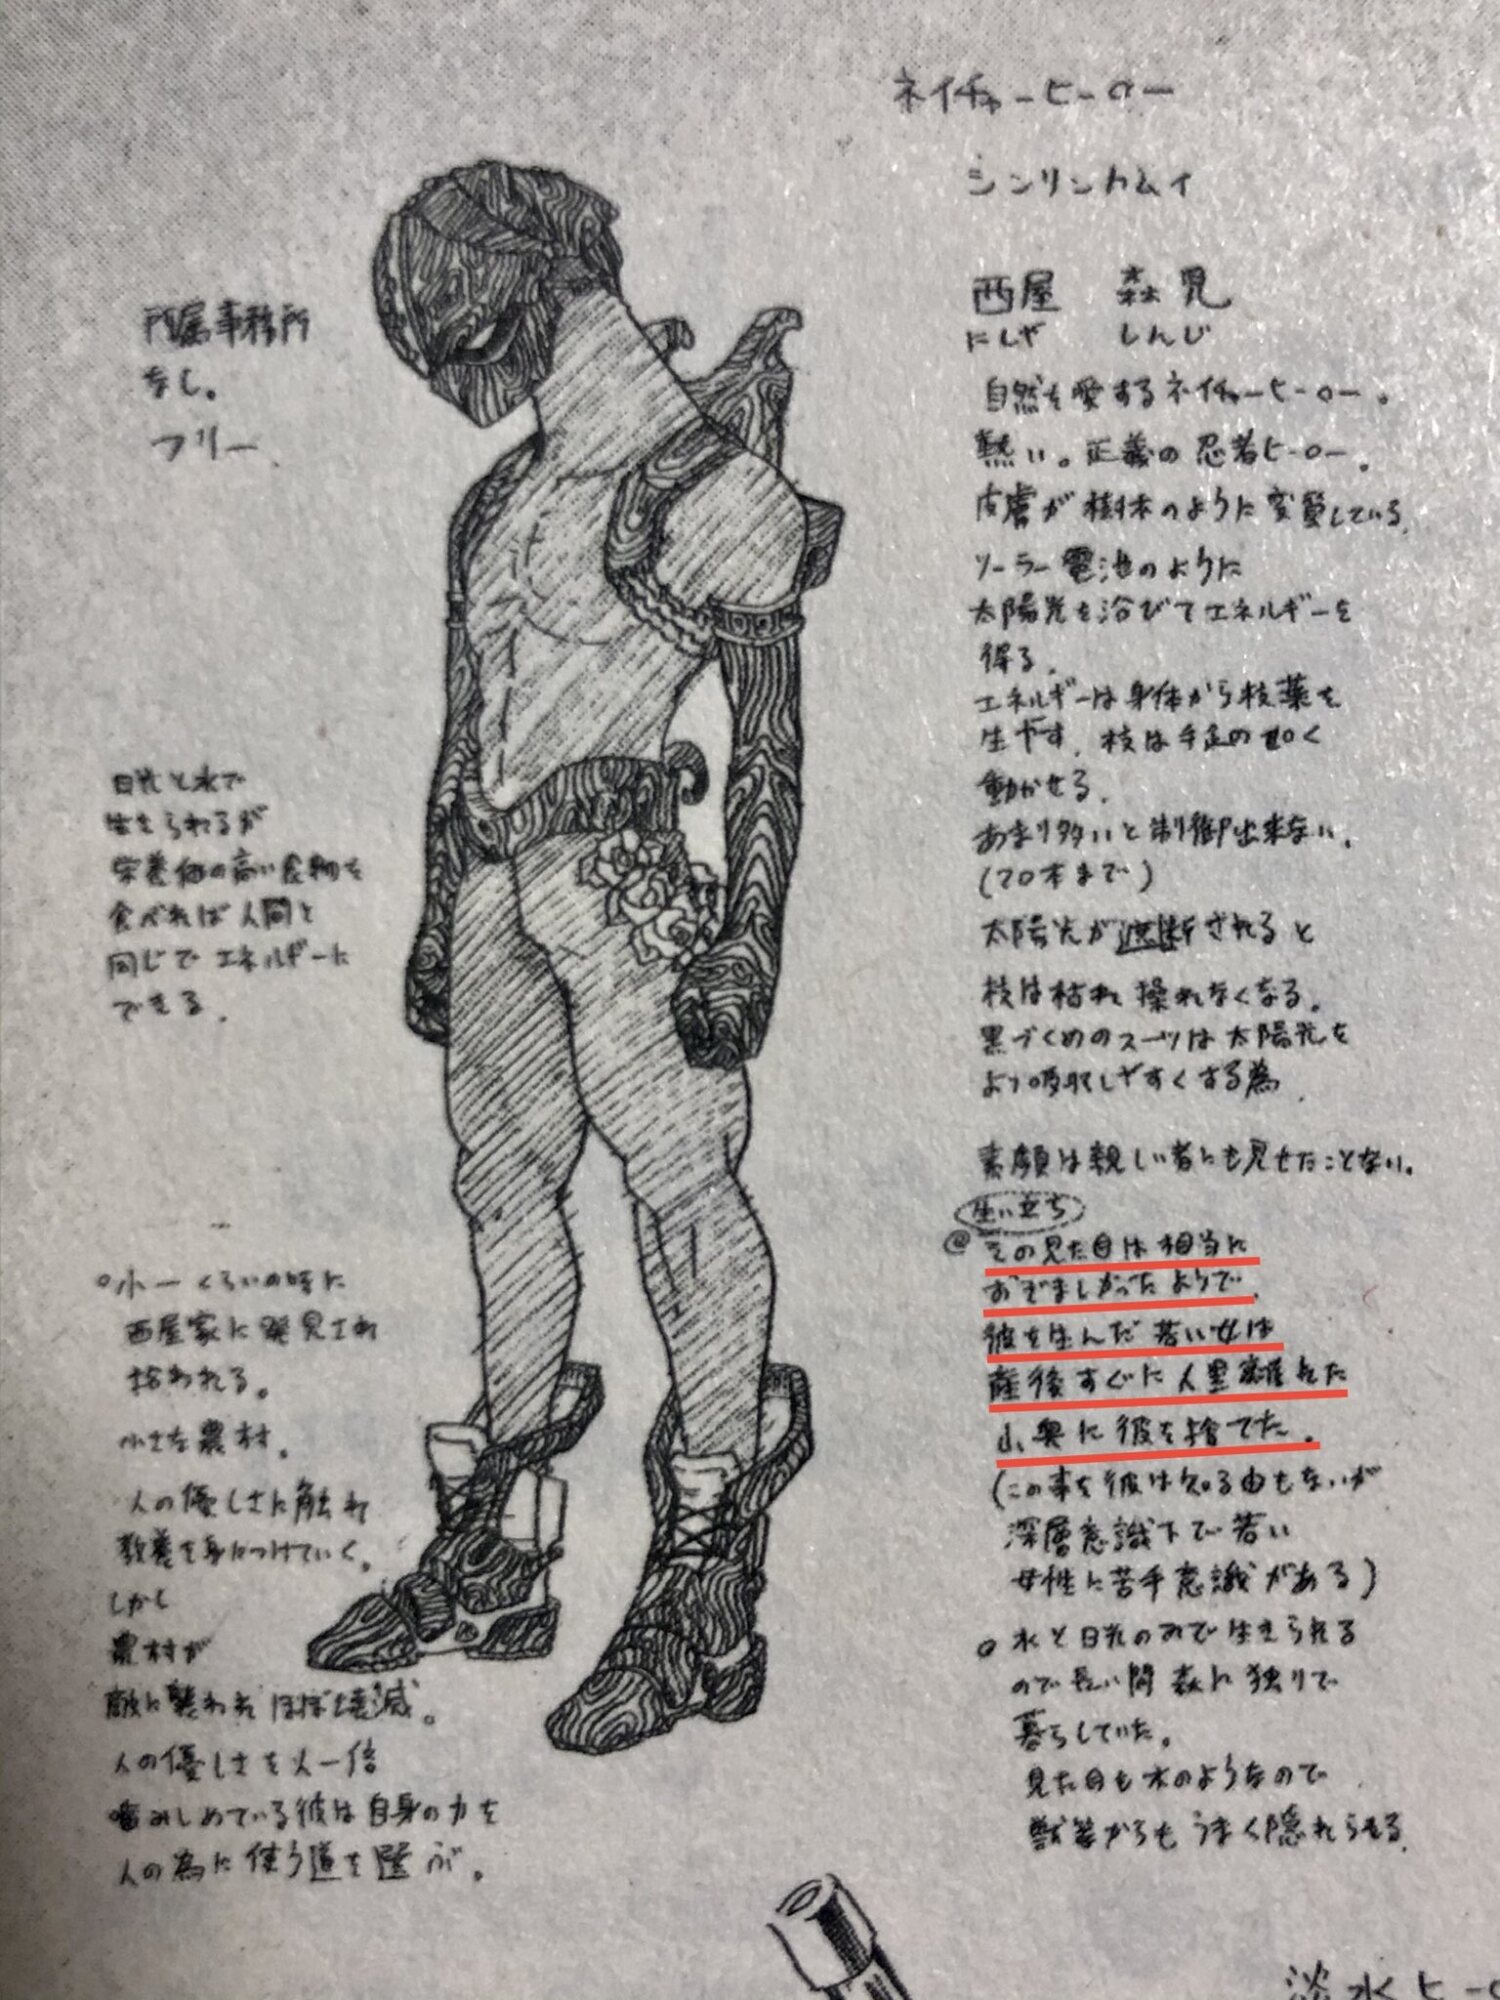 ネイチャーヒーロー
シンリンカムイ
西屋 森児
にしや しんじ
自然を愛するネイチャーヒーロー。
熱い。正義の忍者ヒーロー。
皮膚が樹木のように変質している。
ソーラー電池のように
太陽光を浴びてエネルギーを
得る。
エネルギーは身体から枝葉を
生やす。枝は手足の如く
動かせる。
あまり多いと制御出来ない。
(20本まで)
太陽光が遮断されると
枝は枯れ操れなくなる。
黒づくめのスーツは太陽光を
より吸収しやすくする為。
素顔は親しい者にも見せたことない。
生い立ち
その見た目は相当に
おぞましかったようで、
彼を生んだ若い女は
産後すぐに人里離れた
山奥に彼を捨てた。
(この事を彼は知る由もないが
深層意識下で若い
女性に苦手意識がある)
○水と日光のみで生きられる
ので長い間森に独りで
暮らしていた。
見た目も木のようなので
獣等からもうまく隠れられる。
所属事務所
なし。
フリー。
日光と水で
生きられるが
栄養価の高い食物を
食べれば人間と
同じでエネルギーに
できる。
○小一くらいの時に
西屋家に発見され
拾われる。
小さな農村。
人の優しさに触れ
教養を身につけていく。
しかし
農村が
敵に襲われほぼ壊滅。
人の優しさを人一倍
噛みしめている彼は自身の力を
人の為に使う道を選ぶ。
淡水ヒーロ